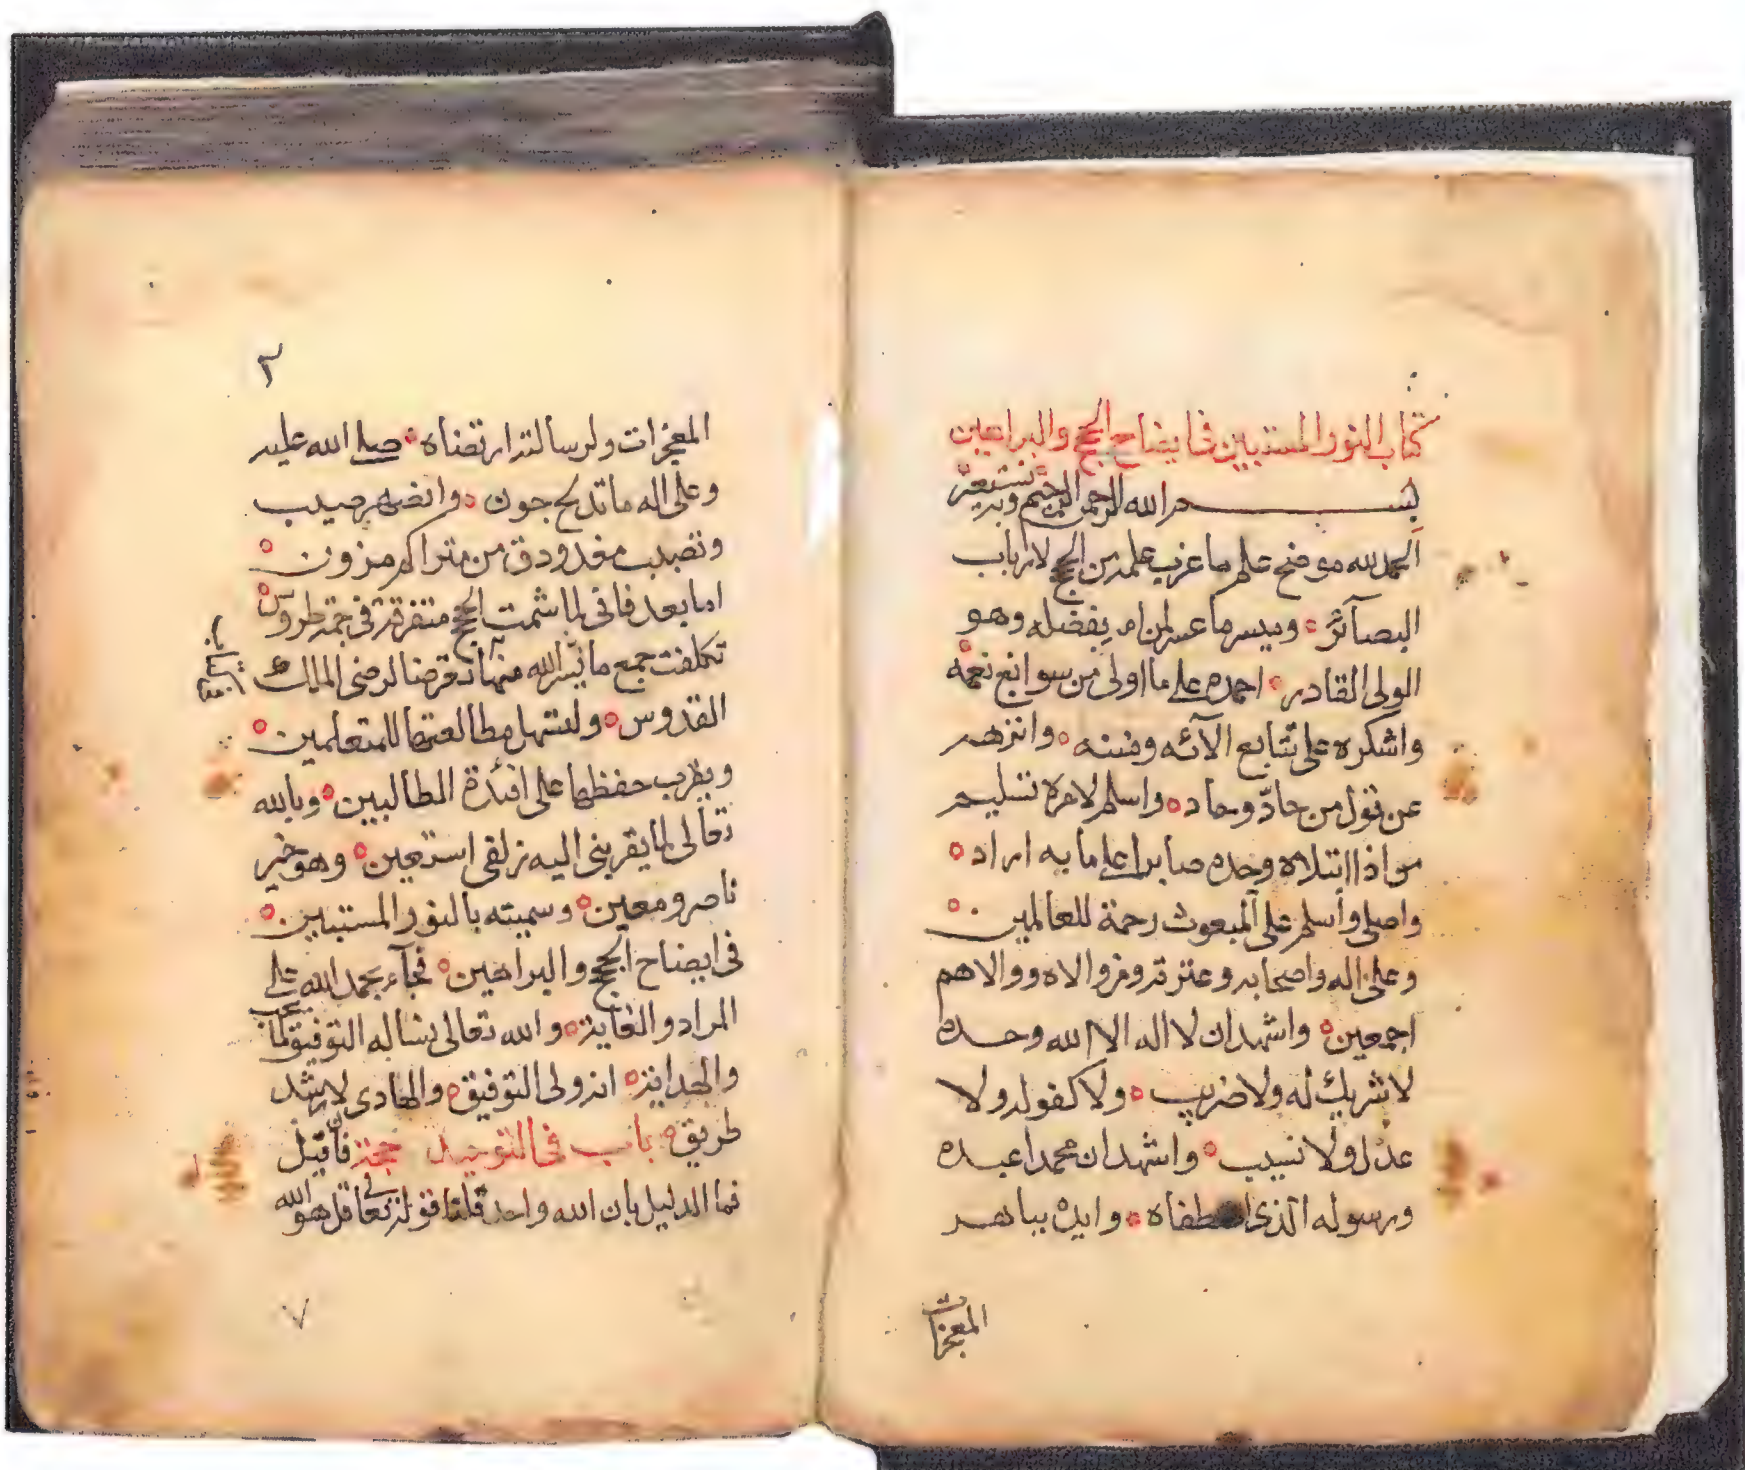 كتاب النور المستبين في ايضاح الحجج والبراهين
بسم الله الرحمن الرحيم وبه نستعين
الحمد لله موضح علم ما عزب علمه من الحجج لارباب
البصآئر وميسر ما عسر لمن ام بفضله وهو
الولى القادر احمده على ما اولى من سوابغ نعمه
واشكره على تتابع الآئه ومننه وانزهه
عن قول من حادّ وحاد واسلم لامره تسليم
من اذا ابتلاه وجده صابرا على ما به اراد
واصلى وأسلم على المبعوث رحمة للعالمين
وعلى اله واصحابه وعترته ومن والاه ووالاهم
اجمعين واشهد ان لا اله الا الله وحده
لا شريك له ولا ضريب ولا كفو له ولا
عدل ولا نسيب واشهد ان محمدا عبده
ورسوله الذى اصطفاه وايده بباهر
المعجزات
٢
المعجزات ولرسالته ارتضاه صلى الله عليه
وعلى اله ما تدلج جون وانضهر صيب
وتصبب مغدودق من متراكم مزون
اما بعد فانى لما شمت الحجج متفرقة فى جمة طروس
تكلفت جمع ما يسّر الله منها قرضا لرضى الملك
القدوس ولتسهل مطالعتها للمتعلمين
ويقرب حفظها على افئدة الطالبين وبالله
تعالى لما يقربنى اليه زلفى استعين وهو خير
ناصر ومعين وسميته بالنور المستبين
فى ايضاح الحجج والبراهين فجآء بحمد الله على
المراد والغاية والله تعالى نساله التوفيق لما يحب
والهداية انه ولى التوفيق والهادى لارشد
طريق باب فى التوحيد حجة فان قيل
فما الدليل بان الله واحد قلنا قوله تعا فى قل هو الله
٧